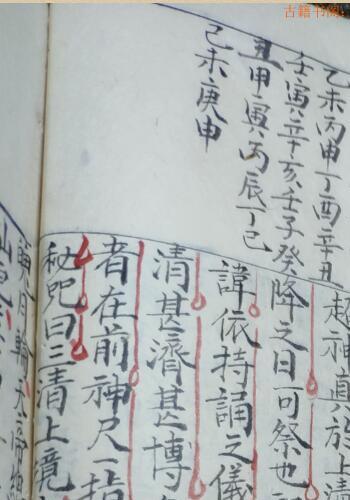 古籍书阁
乙未丙申丁酉辛丑
壬寅辛亥壬子癸
丑甲寅丙辰丁巳
己未庚申
超神真於上清
降之日可祭也
諱依持誦之儀
清甚濟甚博
者在前神尺一指
秘咒曰三清上境